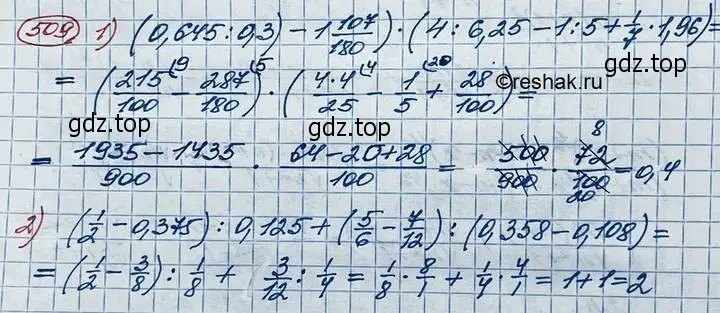 509. 1) (0,645:0,3) - 1 107/180) · (4 : 6,25 - 1:5 + 1/7 · 1,96) =
= (215/100 (9 - 287/180 (5) · (4·4/25 (4 - 1/5 (20 + 28/100) =
©reshak.ru
gdz.top gdz.top gdz.top
= 1935-1435/900 · 64-20+28/100 = 500/900 · 72 8/100 20 = 0,4
2) (1/2 - 0,375) : 0,125 + (5/6 - 7/12) : (0,358 - 0,108) =
= (1/2 - 3/8) : 1/8 + 3/12 : 1/4 = 1/8 · 8/1 + 1/4 · 4/1 = 1+1=2
gdz.top gdz.top